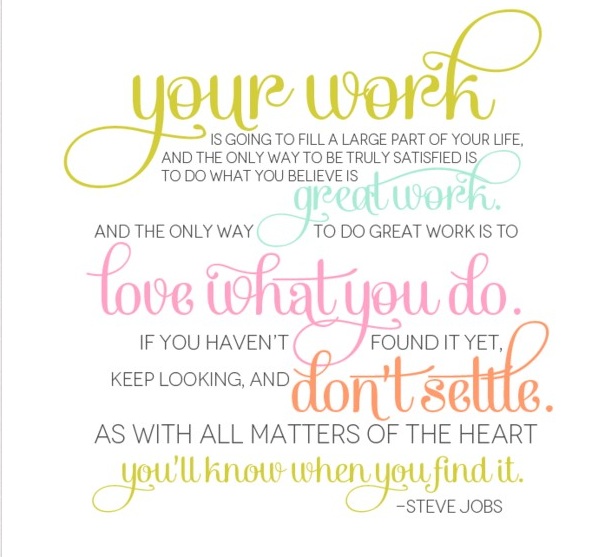 your work
IS GOING TO FILL A LARGE PART OF YOUR LIFE,
AND THE ONLY WAY TO BE TRULY SATISFIED IS
TO DO WHAT YOU BELIEVE IS
great work.
AND THE ONLY WAY TO DO GREAT WORK IS TO
love what you do.
IF YOU HAVEN'T FOUND IT YET,
KEEP LOOKING, AND don't settle.
AS WITH ALL MATTERS OF THE HEART
you'll know when you find it.
–STEVE JOBS